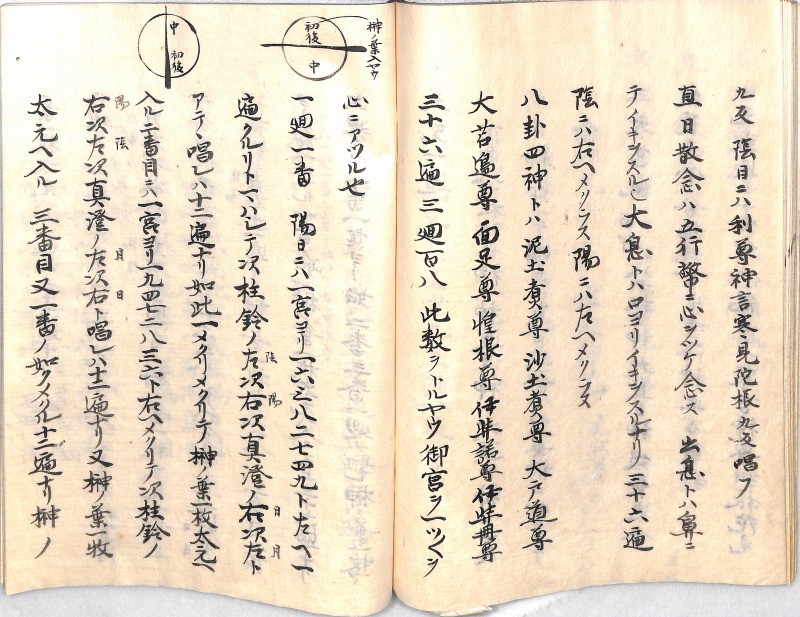 九反 陰日ニハ利尊神言寒言見陀根九反唱フ
直日散念ハ五行幣ニ心ヲツケ念ス 出息トハ鼻ニ
テイキヲスル也 大息トハ口ヨリイキヲスルナリ 三十六遍
陰ニハ右ヘメクラス陽ニハ左ヘメクラス
八卦四神トハ泥土煑尊 沙土煑尊 大戸道尊
大苫邉尊 面足尊 惶根尊 伊弉諾尊 伊弉冊尊
三十六遍 三廻百八 此数ヲトルヤウ御宮ヲ一ツヅヽ
榊ノ葉入ヤウ
初後
中
心ニアツル也
一廻一番 陽日ニハ一宮ヨリ一六三八二七四九ト左ヘ一
遍クルリトマハシテ次柱鈴ノ左次右次真澄ノ右次左ト
陰 陽
日 月
アテヽ唱レハ十二遍ナリ如此一メクリメクリテ榊ノ葉一枚太元ヘ
入ル二番目ニハ一宮ヨリ一九四七二八三六ト右ヘメクリテ次柱鈴ノ
中
初後
右次左次真澄ノ左次右ト唱レハ十二遍ナリ又榊ノ葉一枚
陽 陰
月 日
太元ヘ入ル 三番目又一番ノ如クメクル十二遍ナリ榊ノ